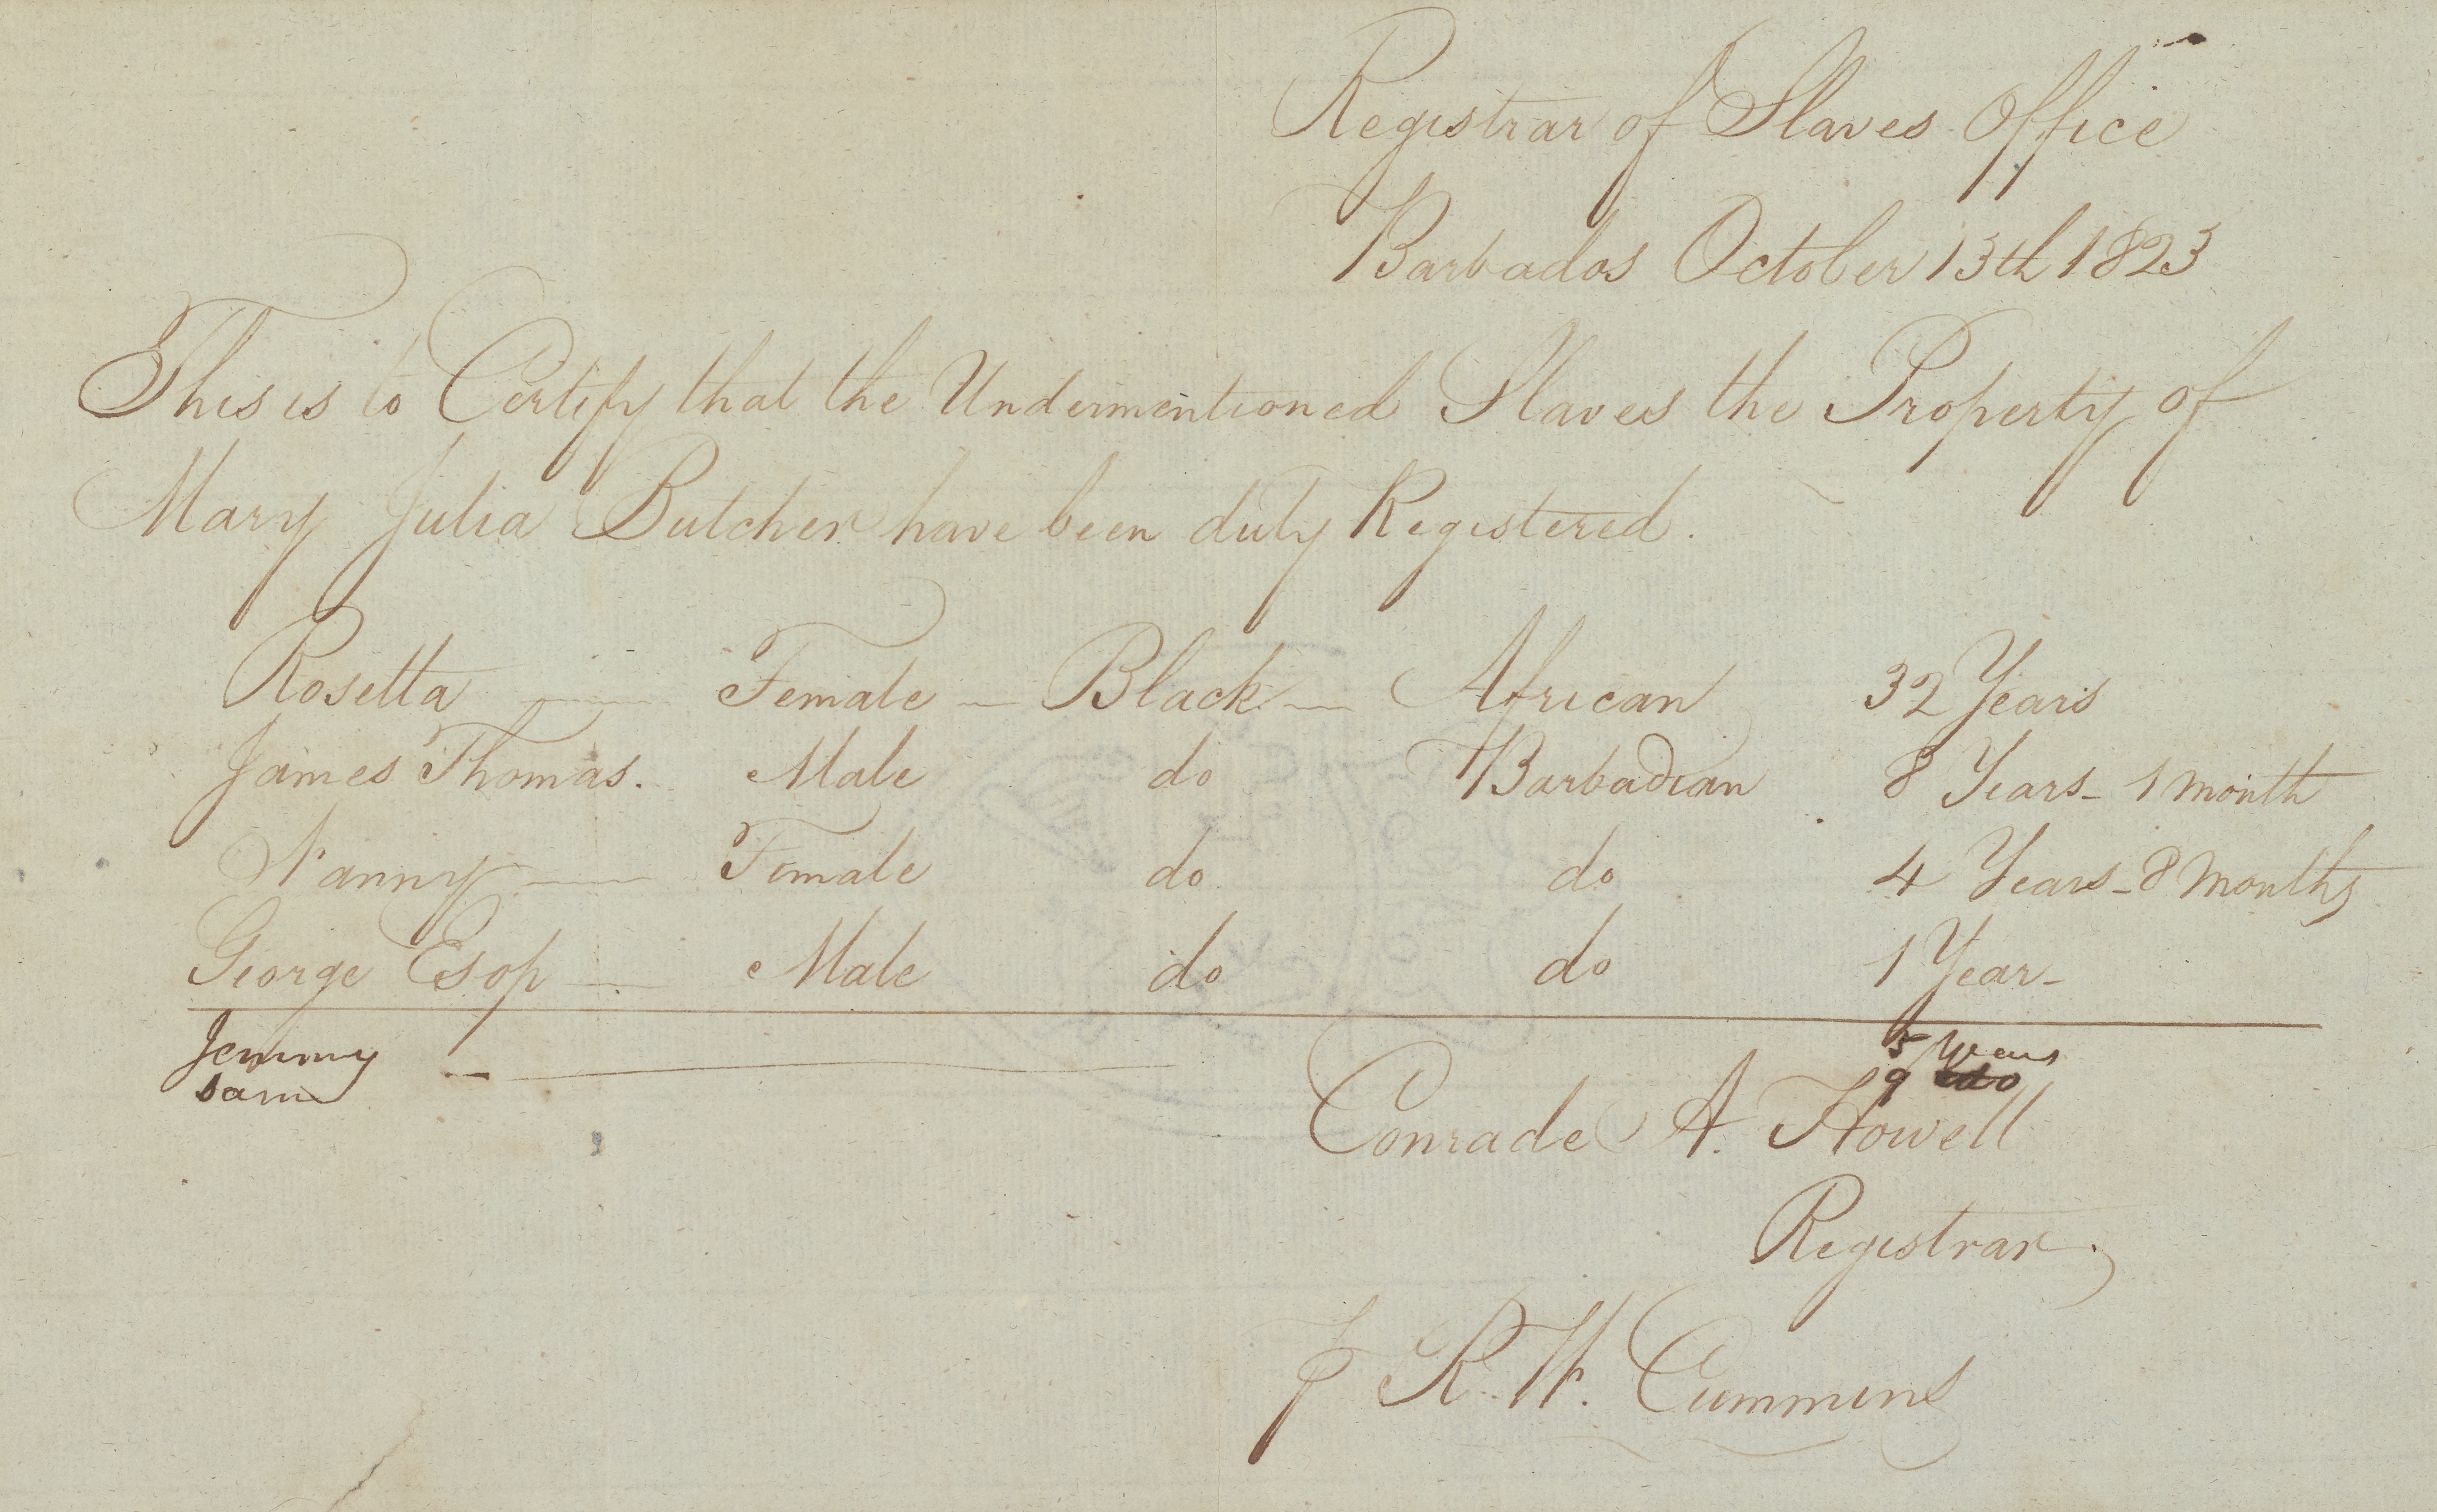 Registrar of Slaves Office
Barbados October 13th 1823
This is to Certify that the Undermentioned Slaves the Property of
Mary Julia Butcher have been duly Registered.
Rosetta — Female — Black — African 32 Years
James Thomas. Male do Barbadian 8 Years - 1 Month
Nanny — Female do do 4 Years - 8 Months
George Esop — Male do do 1 Year -
Jemmy — 5 years
Sam 9 do
Conrade A. Howell
Registrar
R. W. Cummins